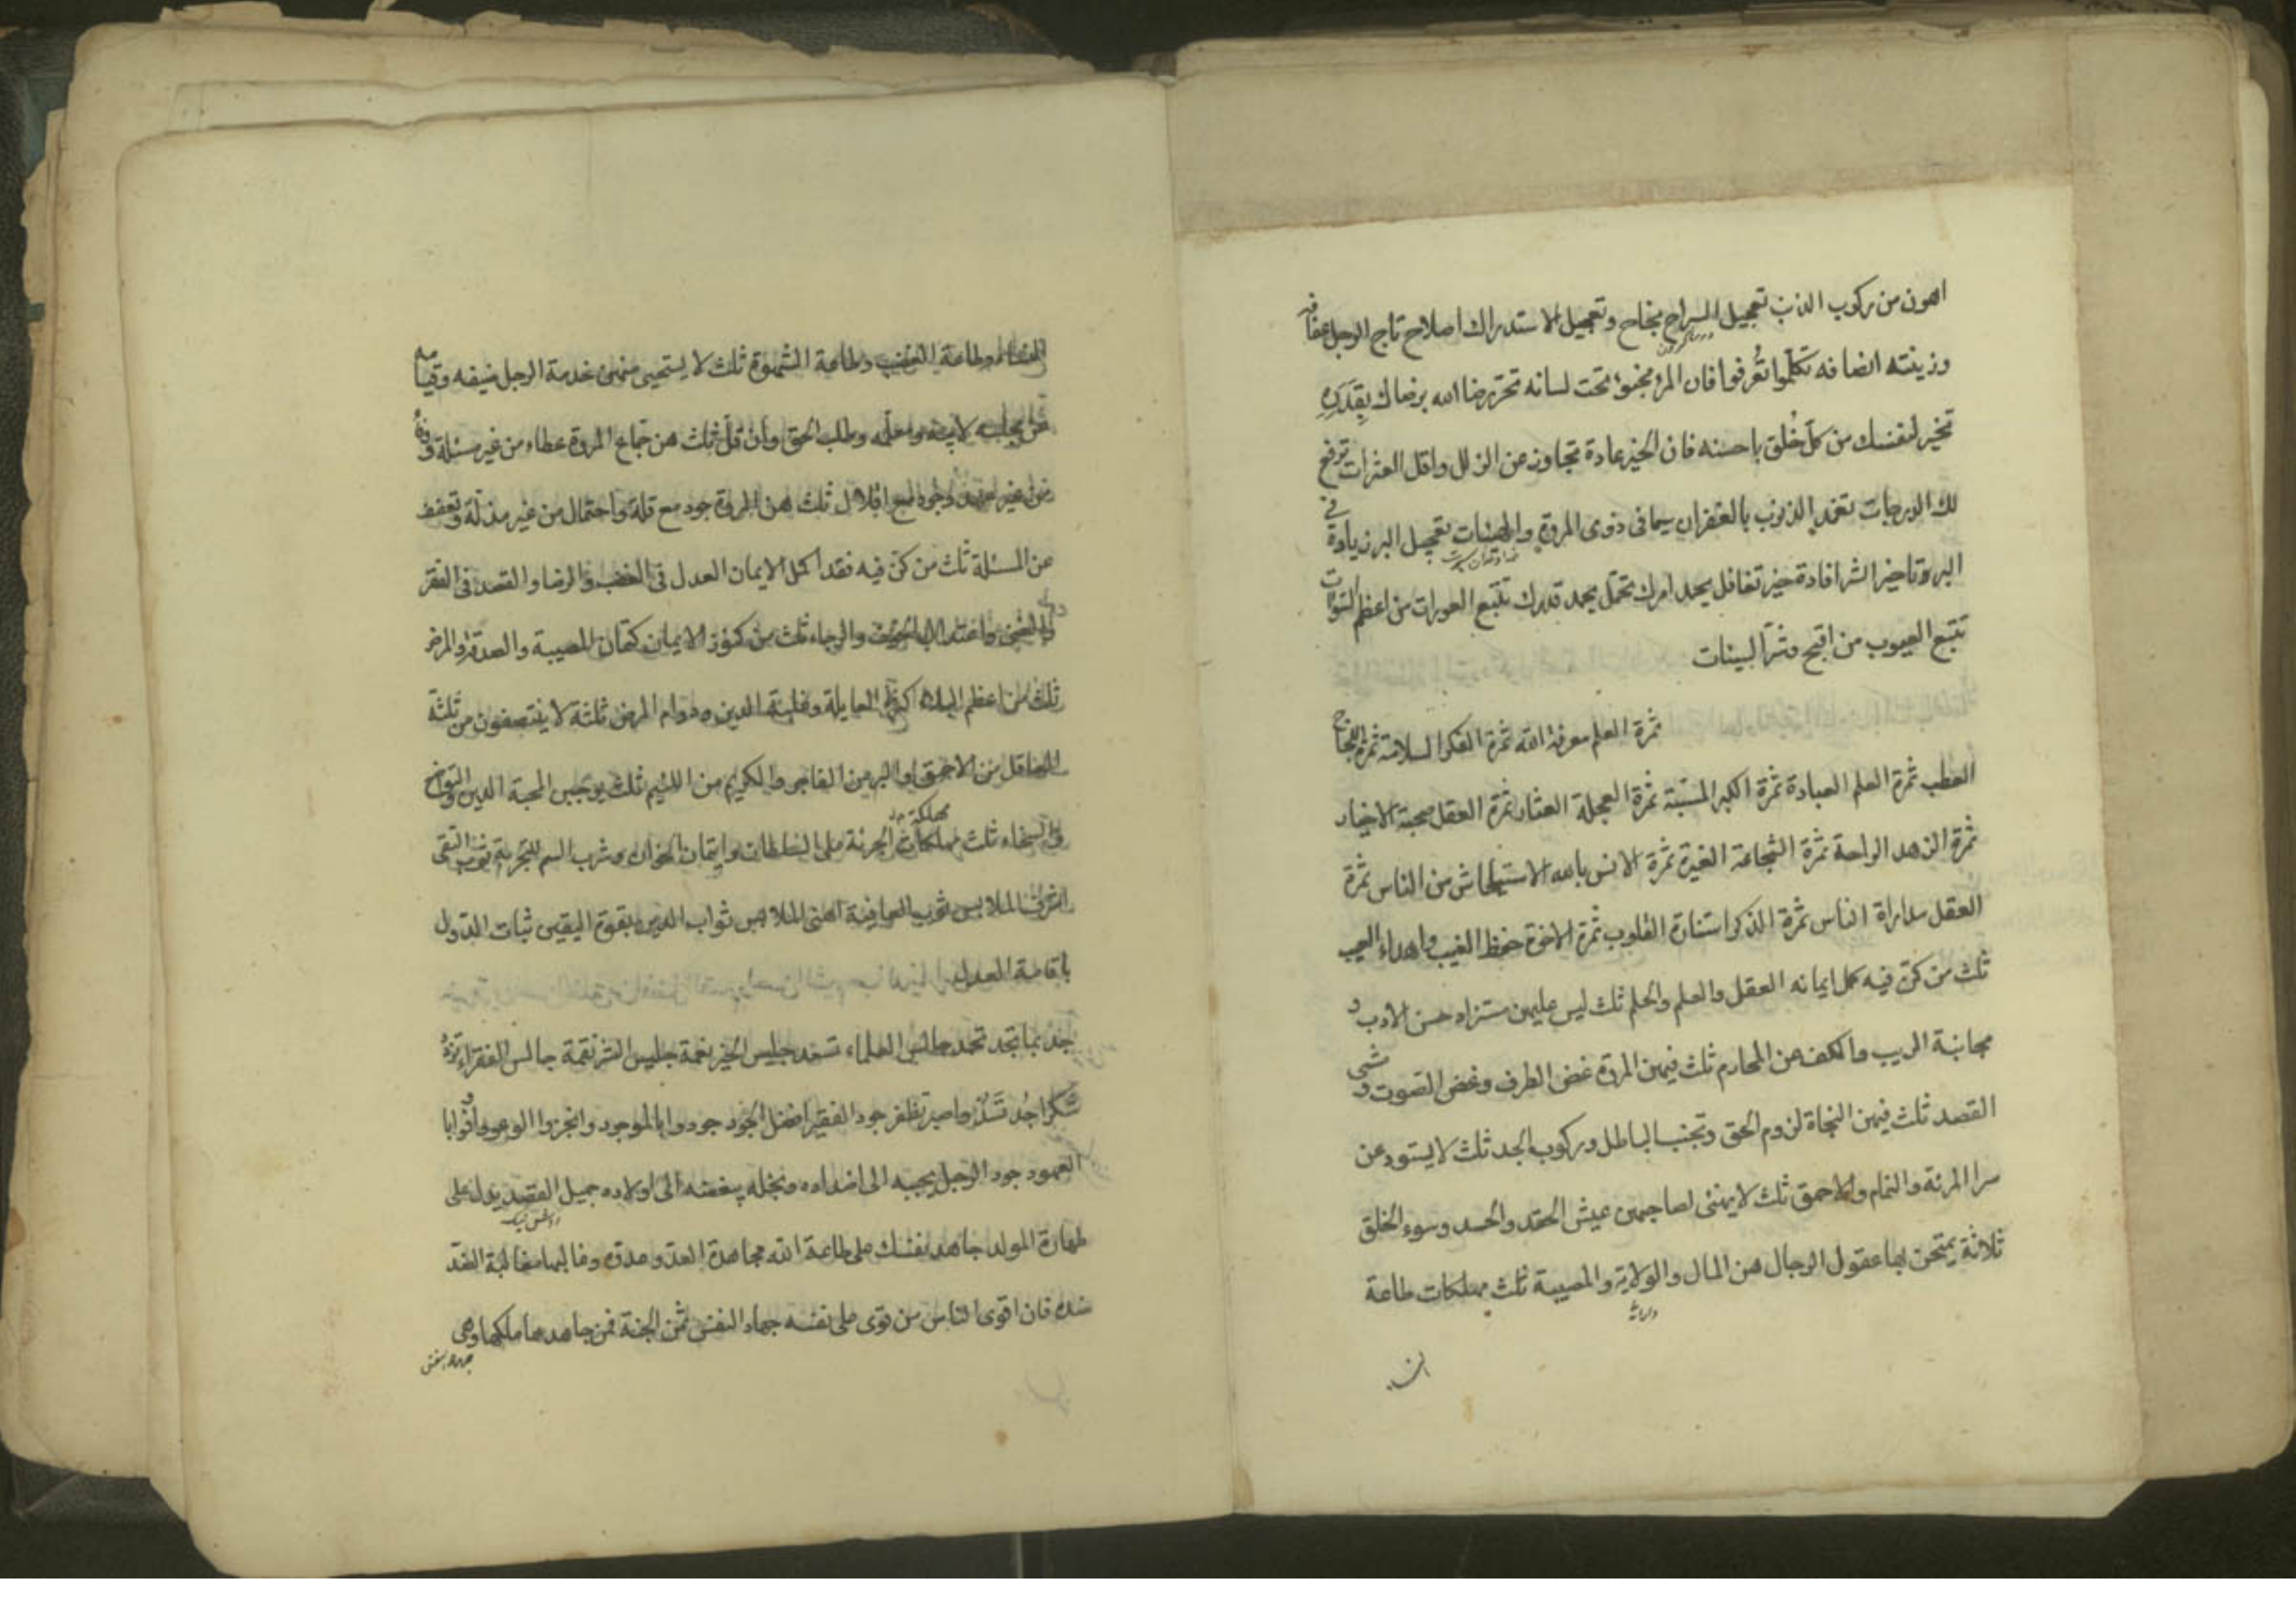 اهون من ركوب الذنب تعجيل السراح نجاح وتعجيل الاستدراك اصلاح تاج الرجل عفافه
وزينته انصافه تكلموا تعرفوا فان المرء مخبوء تحت لسانه تحر رضا الله برضاك بقدره
تخير لنفسك من كل خلق باحسنه فان الخير عادة تجاوز عن الزلل واقل العثرات ترفع
لك الدرجات تغمد الذنوب بالغفران سيما فى ذوى المروة والهيئات تعجيل البر زيادة فى
البر وتاخير الشر افادة خير تغافل يحمد امرك تحمل يحمد قدرك تتبع العورات من اعظم السوات
تتبع العيوب من اقبح وشر السيئات
ثمرة العلم معرفة الله ثمرة الفكر السلامة ثمرة اللجاج
العطب ثمرة العلم العبادة ثمرة الكبر المسبة ثمرة العجلة العثار ثمرة العقل صحبة الاخيار
ثمرة الزهد الراحة ثمرة الشجاعة الغيرة ثمرة الانس بالله الاستيحاش من الناس ثمرة
العقل مداراة الناس ثمرة الذكر استنارة القلوب ثمرة الاخوة حفظ الغيب واهداء العيب
ثلث من كن فيه كمل ايمانه العقل والعلم والحلم ثلث ليس عليهن مستزاد حسن الادب و
مجانبة الريب والكف عن المحارم ثلث فيهن المروة غض الطرف وغض الصوت ومشى
القصد ثلث فيهن النجاة لزوم الحق وتجنب الباطل وركوب الجد ثلث لا يستودعن
سرا المرئة والنمام والاحمق ثلث لا يهنئ لصاحبهن عيش الحقد والحسد وسوء الخلق
ثلاثة يمتحن بها عقول الرجال هن المال والولاية والمصيبة ثلث مهلكات طاعة
النساء وطاعة الغضب وطاعة الشهوة ثلث لا يستحيى منهن خدمة الرجل ضيفه وقيامه
عن مجلسه لابيه ومعلمه وطلب الحق وان قل ثلث هن جماع المروة عطاء من غير مسئلة و
من غير عهد وجود مع اقلال ثلث هن المروة جود مع قلة واحتمال من غير مذلة وتعفف
عن المسئلة ثلث من كن فيه فقد اكمل الايمان العدل فى الغضب والرضا والقصد فى الفقر
والغنى واعتدال الخوف والرجاء ثلث من كنوز الايمان كتمان المصيبة والصدقة والمرض
ثلث من اعظم البلاء كثرة العايلة وغلبة الدين ودوام المرض ثلثة لا ينتصفون من ثلثة
العاقل من الاحمق والبر من الفاجر والكريم من اللئيم ثلث يوجبن المحبة الدين والتواضع
والسخاء ثلث مهلكات الجرئة على السلطان وايتمان الخوان وشرب السم للتجربة ثوب التقى
اشرف الملابس ثوب العافية اهنى الملابس ثواب الدين بقوة اليقين ثبات الدول
باقامة العدل
جد بما تجد تحمد جالس العلماء تسعد جليس الخير نعمة جليس الشر نقمة جالس الفقراء تزدد
شكرا جد تسد واصبر تظفر جود الفقير افضل الجود جودوا بالموجود وانجزوا الوعود واوفوا بالعهود
جود الرجل يحببه الى اضداده وبخله يبغضه الى اولاده جميل القصد يدل على
طهارة المولد جاهد نفسك على طاعة الله مجاهدة العدو عدوه وغالبها مغالبة الضد
ضده فان اقوى الناس من قوى على نفسه جهاد النفس ثمن الجنة فمن جاهدها ملكها وهى